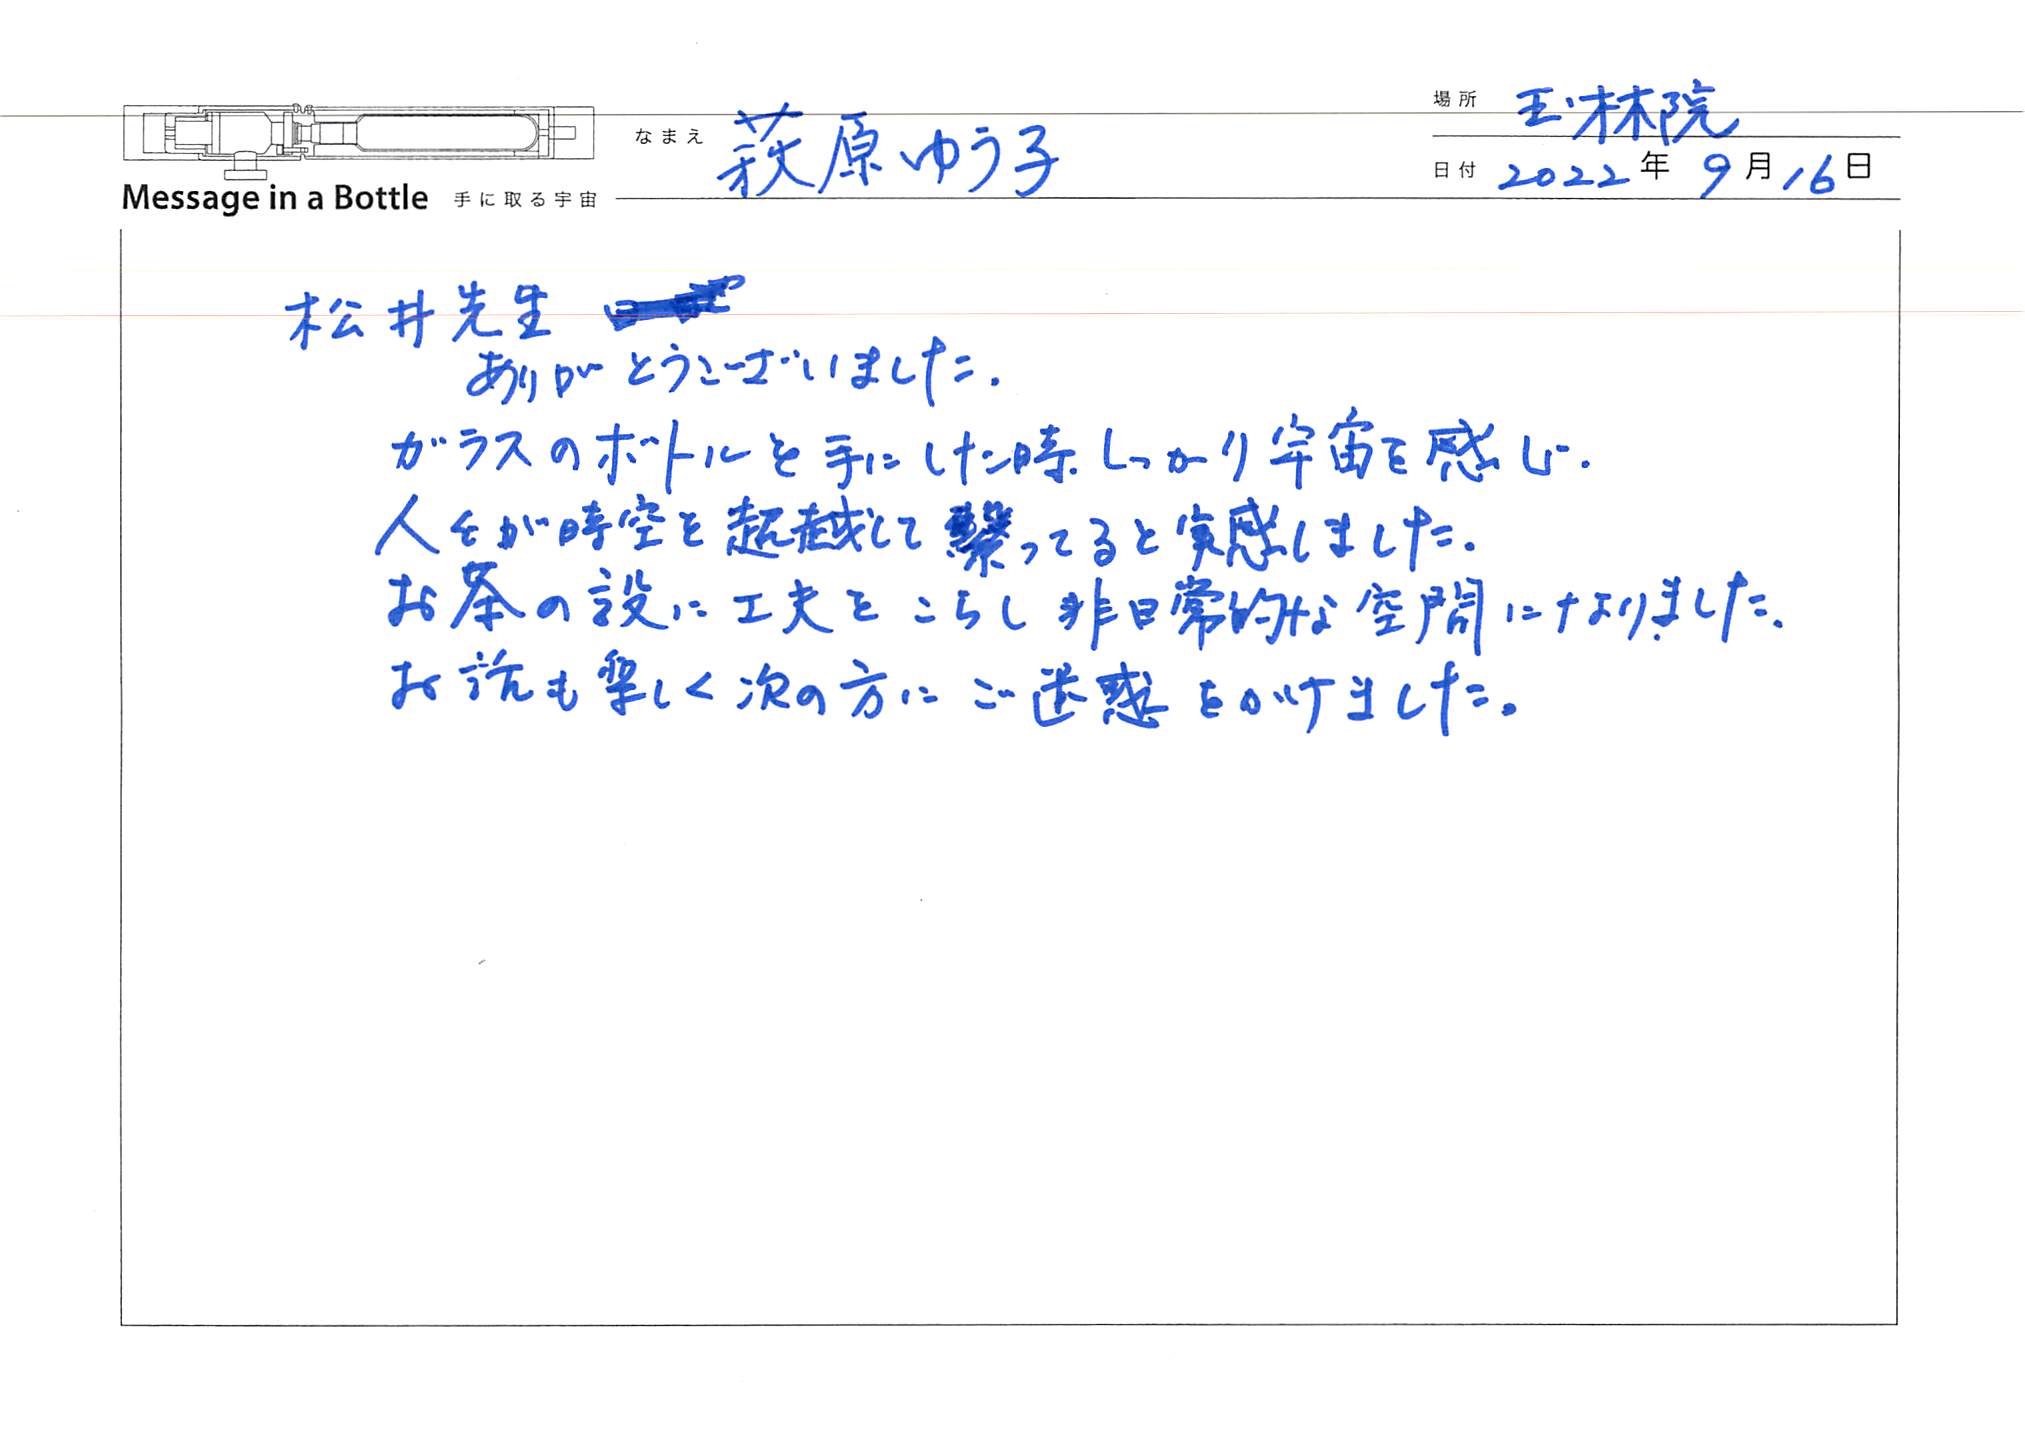 場所 玉林院
なまえ 萩原ゆう子
日付 2022年9月16日
Message in a Bottle 手に取る宇宙
松井先生
ありがとうございました.
ガラスのボトルを手にした時しっかり宇宙を感じ.
人々が時空を超越して繋ってると実感しました.
お茶の設に工夫をこらし非日常的な空間になりました.
お話も楽しく次の方にご迷惑をかけました。